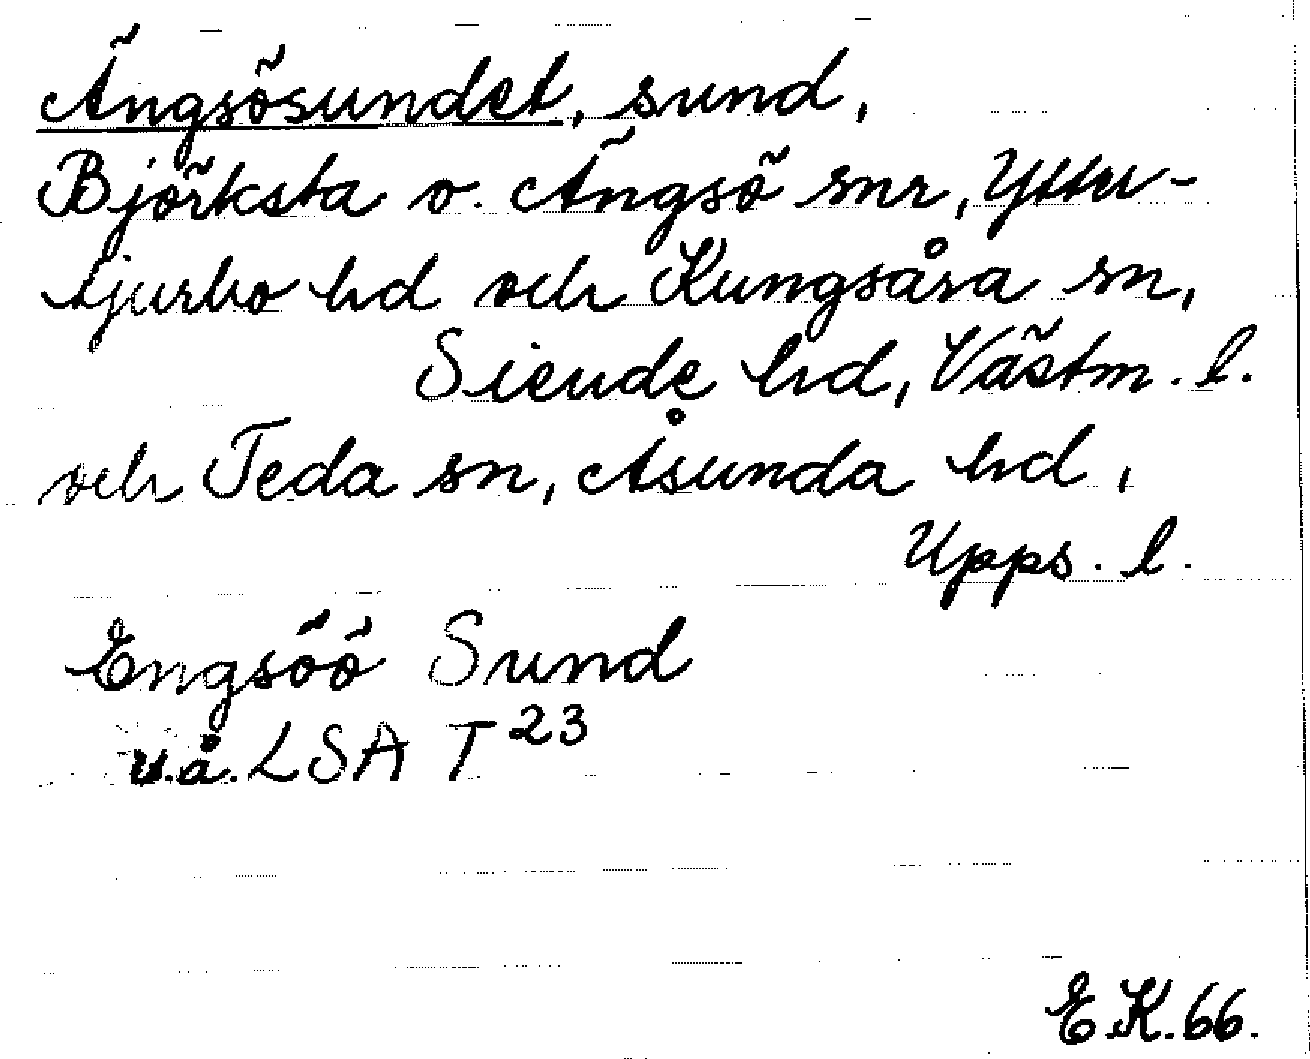 Ängsösundet, sund,
Björksta o. Ängsö snr, Ytter-
tjurbo hd och Kungsåra sn,
Siende hd, Västm. l.
och Teda sn, Åsunda hd,
Upps. l.
Engsöö Sund
u.å. LSA T 23
E.K. 66.